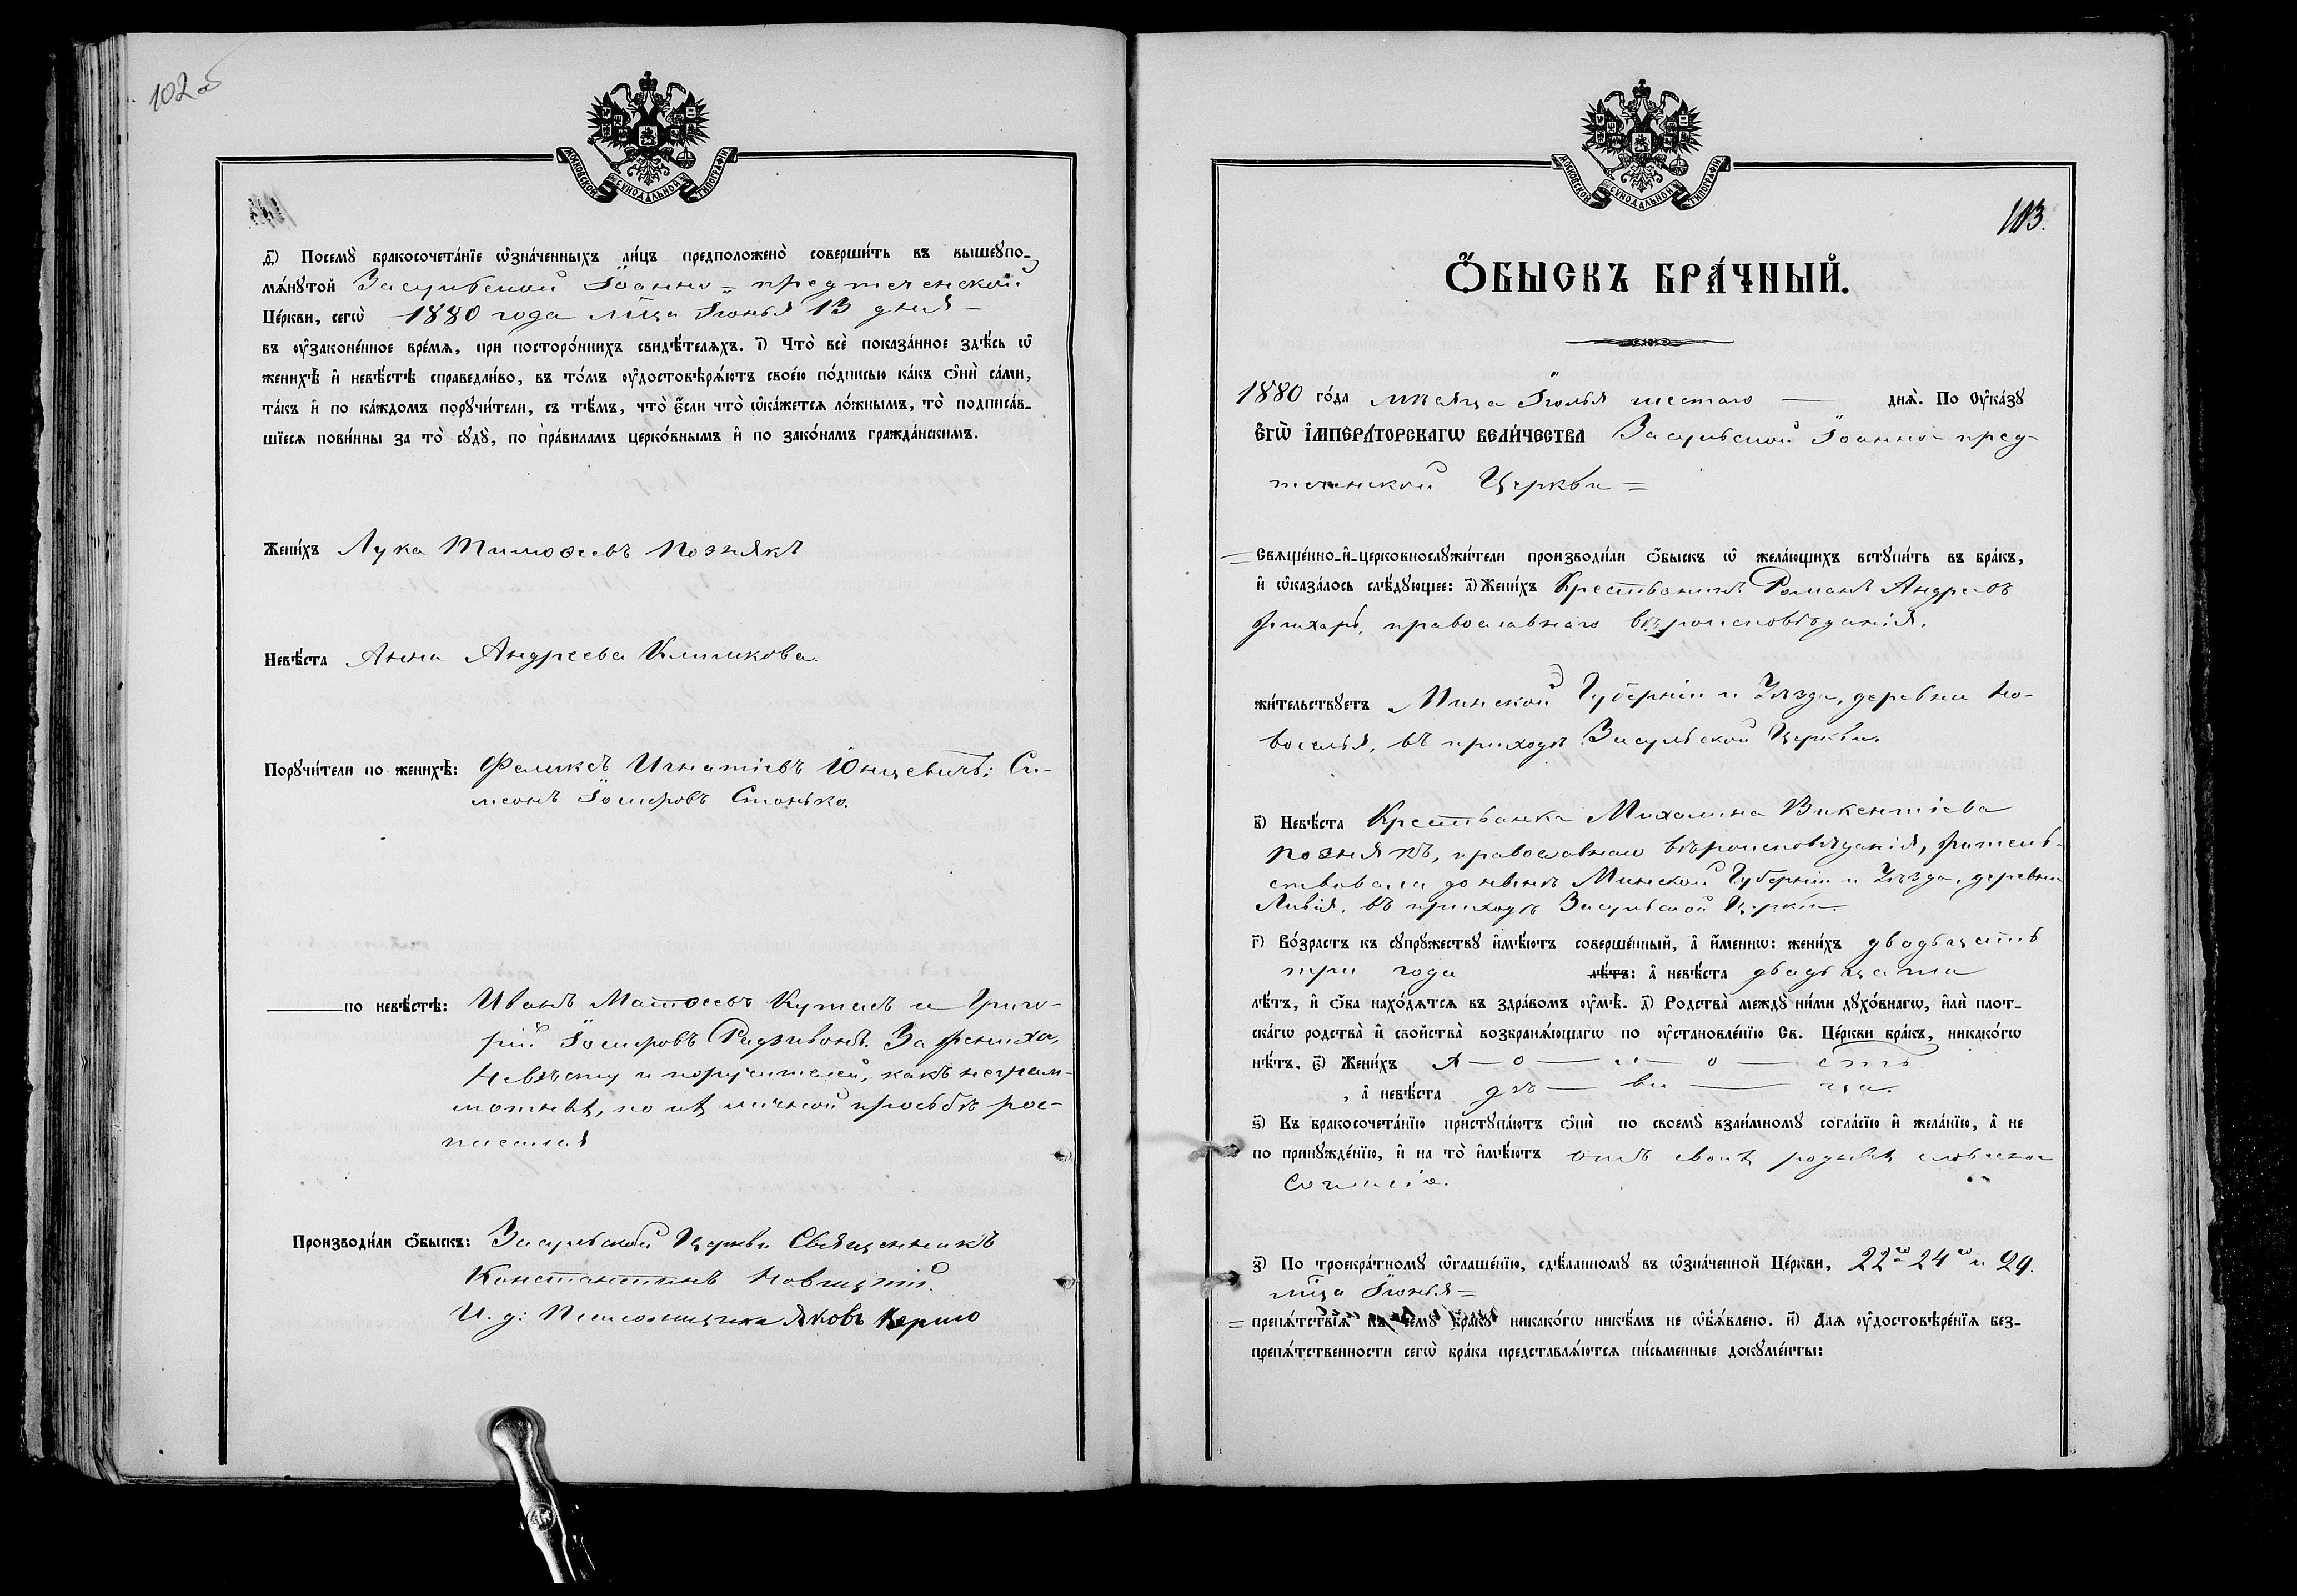 102 об
МОСКОВСКОЙ СѴНОДАЛЬНОЙ ТИПОГРАФІИ
д҃) Посемꙋ̀ бракосочета́нїе ѡ҆зна́ченныхъ ли́цъ предположено̀ соверши́ть въ вышеꙋпо-
мѧ́нꙋтой Засульской Іоанно-предтеченской
Це́ркви, сегѡ̀ 1880 года мца Іюнья 13 дня
въ ᲂу҆законе́нное вре́мѧ, при посторо́ннихъ свидѣ́телѧхъ. і҃) Что̀ всѐ показа́нное здѣ́сь ѡ҆
женихѣ̀ и҆ невѣ́стѣ справедли́во, въ то́мъ ᲂу҆достовѣрѧ́ютъ свое́ю по́дписью ка́къ ѻ҆нѝ са́ми,
та́къ и҆ по ка́ждомъ порꙋчи́тели, съ тѣ́мъ, что̀ є҆́сли что̀ ѡ҆ка́жетсѧ ло́жнымъ, то̀ подписа́в-
шїесѧ пови́нны за то̀ сꙋдꙋ̀, по пра́виламъ церко́внымъ и҆ по зако́намъ гражда́нскимъ.
Жени́хъ Лука Тимоѳеевъ Познякъ
Невѣ́ста Анна Андреева Климкова.
Порꙋчи́тели по женихѣ̀: Феликсъ Игнатіевъ Юнцевичъ; Си-
меонъ Іосифовъ Станько.
по невѣ́стѣ: Иванъ Матѳеевъ и Григо-
рій Іосифовъ Радзивонъ. За жениха,
невѣсту и поручителей, какъ неграм-
мотныхъ, по ихъ личной просьбѣ рос-
писался
Производи́ли ѻ҆́быскъ: Засульской Церкви Священникъ
Константинъ Новицкій.
И. д: Псаломщика Яковъ
МОСКОВСКОЙ СѴНОДАЛЬНОЙ ТИПОГРАФІИ
103.
Ѻ҆́БЫСКЪ БРА́ЧНЫЙ.
1880 го́да мѣсяца Іюлья шестаго днѧ̀. По Оу҆ка́зꙋ
Є҆ГѠ̀ И҆МПЕРА́ТОРСКАГѠ ВЕЛИ́ЧЕСТВА Засульской Іоанно-пред-
теченской Церкви
Свѧще́нно-и҆-церковнослꙋжи́тели производи́ли ѻ҆́быскъ ѡ҆ жела́ющихъ встꙋпи́ть въ бра́къ,
и҆ ѡ҆каза́лось слѣ́дꙋющее: а҃) Жени́хъ Крестьянинъ Романъ Андреевъ
православнаго вѣроисповѣданія,
жи́тельствꙋетъ Минской Губерніи и Уѣзда, деревни Но-
воселья, въ приходѣ Засульской Церкви.
в҃) Невѣ́ста Крестьянка Михалина Викентіева
Познякъ, православнаго вѣроисповѣданія, житель-
ствовала до нынѣ Минской Губерніи и Уѣзда, деревни
въ приходѣ Засульской Церкви
г҃) Во́зрастъ къ сꙋпрꙋ́жествꙋ и҆мѣ́ютъ соверше́нный, а҆ и҆́меннѡ: жени́хъ двадьцать
три года лѣ́тъ: а҆ невѣ́ста двадьцати
лѣ́тъ, и҆ ѻ҆́ба нахо́дѧтсѧ въ здра́вомъ ᲂу҆мѣ̀. д҃) Родства̀ междꙋ̀ ни́ми дꙋхо́внагѡ, и҆лѝ плот-
ска́гѡ родства̀ и҆ свойства̀ возбранѧ́ющагѡ по ᲂу҆становле́нїю Св. Це́ркви бра́къ, никако́гѡ
нѣ́тъ. є҃) Жени́хъ х — о — л — о — стъ
, а҆ невѣ́ста дѣ — ви — ца.
ѕ҃) Къ бракосочета́нїю пристꙋпа́ютъ ѻ҆нѝ по своемꙋ̀ взаи́мномꙋ согла́сїю и҆ жела́нїю, а҆ не
по принꙋжде́нїю, и҆ на то̀ и҆мѣ́ютъ отъ своихъ родныхъ словесно
согласіе.
з҃) По троекра́тномꙋ ѡ҆глаше́нїю, сдѣ́ланномꙋ въ ѡ҆зна́ченной Це́ркви, 22го 24го и 29.
мца Іюнья
препѧ́тствїѧ къ семꙋ̀ бра́кꙋ никако́гѡ никѣ́мъ не ѡ҆б̾ѧ́влено. и҃) Длѧ ᲂу҆достовѣре́нїѧ без-
препѧ́тственности сегѡ̀ бра́ка представлѧ́ютсѧ пи́сьменные докꙋме́нты: